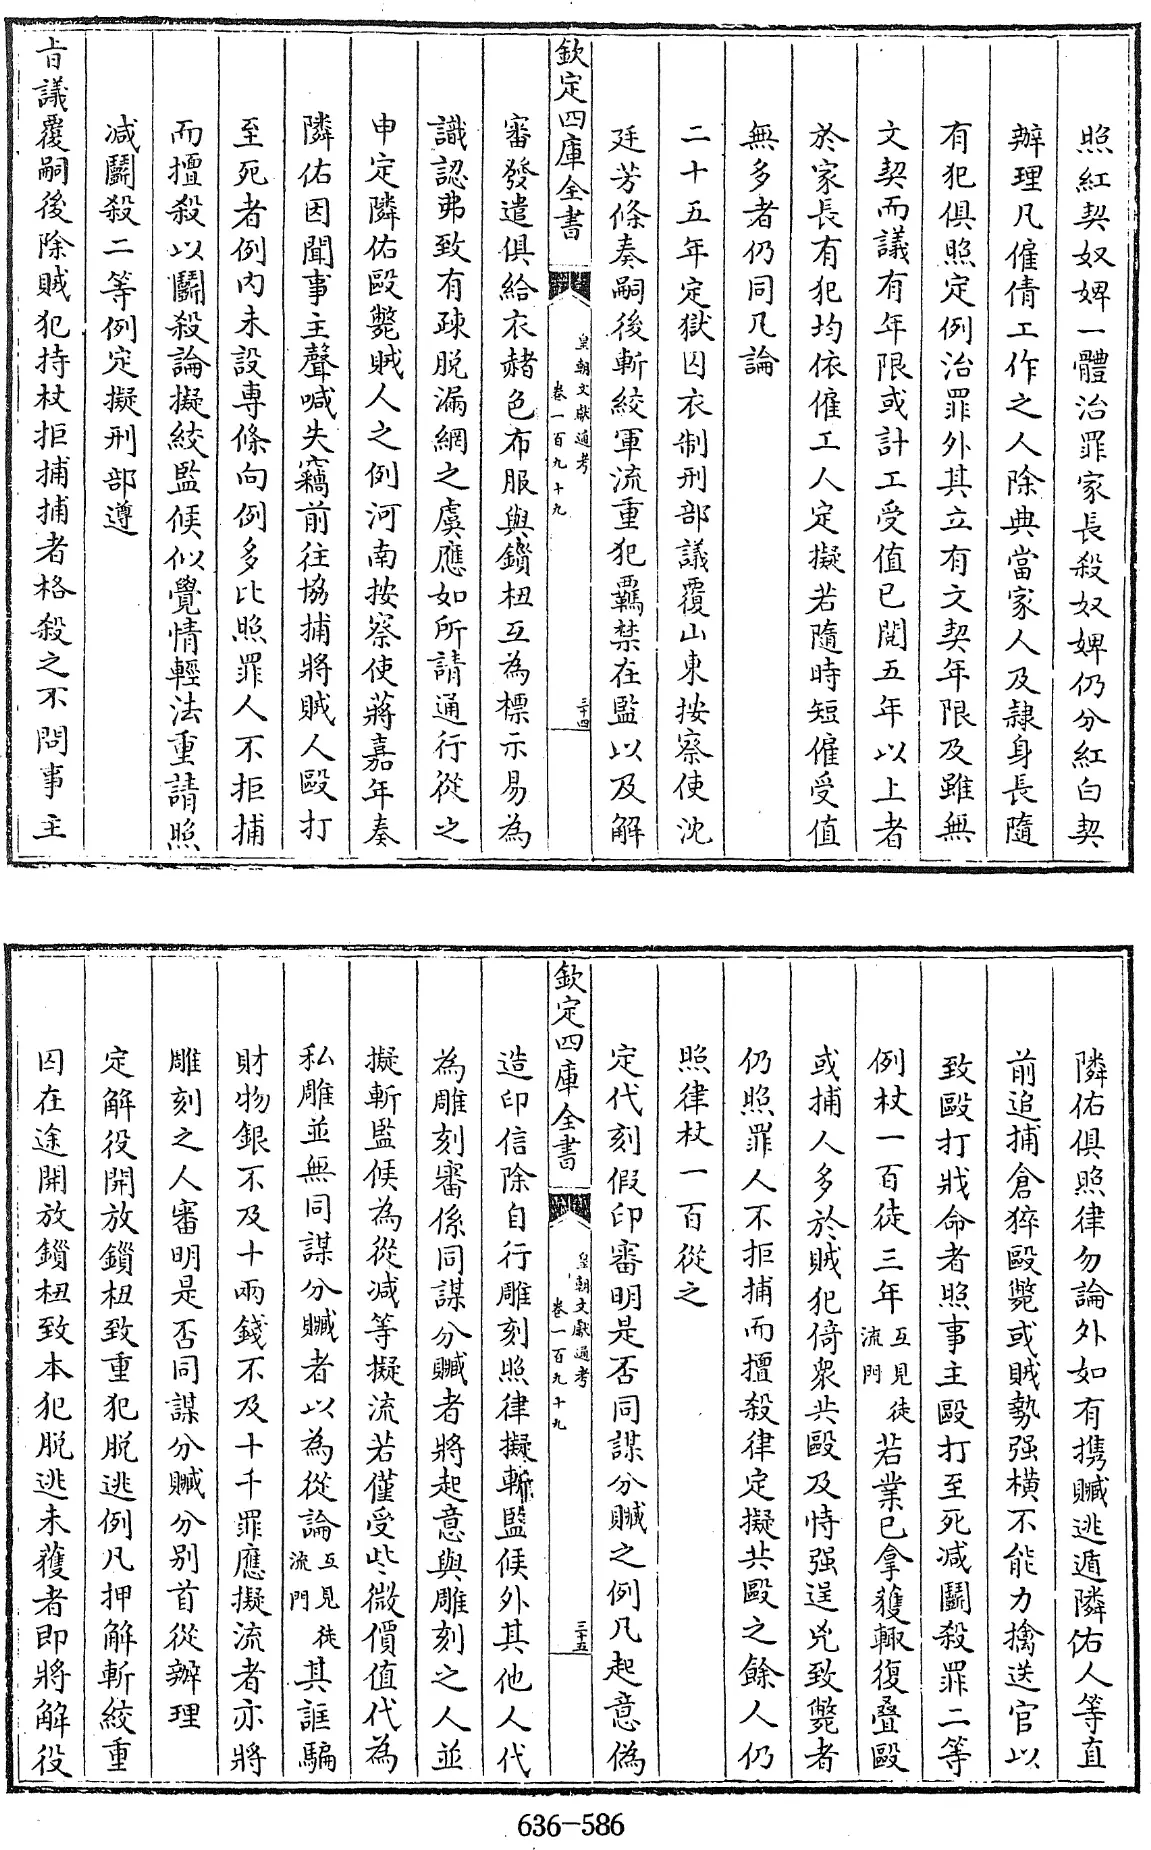 照紅契奴婢一體治罪家長殺奴婢仍分紅白契
辦理凡僱倩工作之人除典當家人及隸身長隨
有犯俱照定例治罪外其立有文契年限及雖無
文契而議有年限或計工受值已閱五年以上者
於家長有犯均依僱工人定擬若隨時短僱受值
無多者仍同凡論
二十五年定獄囚衣制刑部議覆山東按察使沈
廷芳條奏嗣後斬絞軍流重犯羈禁在監以及解
欽定四庫全書
皇朝文獻通考
卷一百九十九
三十四
審發遣俱給衣赭色布服與鎖杻互為標示易為
識認弗致有疎脱漏網之虞應如所請通行從之
申定隣佑毆斃賊人之例河南按察使蔣嘉年奏
隣佑因聞事主聲喊失竊前往協捕將賊人毆打
至死者例内未設專條向例多比照罪人不拒捕
而擅殺以鬭殺論擬絞監候似覺情輕法重請照
减鬭殺二等例定擬刑部遵
㫖議覆嗣後除賊犯持杖拒捕捕者格殺之不問事主
隣佑俱照律勿論外如有攜贓逃遁隣佑人等直
前追捕倉猝毆斃或賊勢强横不能力擒送官以
致毆打戕命者照事主毆打至死减鬭殺罪二等
例杖一百徒三年互見徒流門若業已拿獲輒復疊毆
或捕人多於賊犯倚衆共毆及恃强逞兇致斃者
仍照罪人不拒捕而擅殺律定擬共毆之餘人仍
照律杖一百從之
定代刻假印審明是否同謀分贓之例凡起意偽
欽定四庫全書
皇朝文獻通考
卷一百九十九
三十五
造印信除自行雕刻照律擬斬監候外其他人代
為雕刻審係同謀分贓者將起意與雕刻之人並
擬斬監候為從减等擬流若僅受些微價值代為
私雕並無同謀分贓者以為從論互見徒流門其誆騙
財物銀不及十兩錢不及十千罪應擬流者亦將
雕刻之人審明是否同謀分贓分別首從辦理
定解役開放鎖杻致重犯脱逃例凡押解斬絞重
囚在途開放鎖杻致本犯脱逃未獲者即將解役
636-586